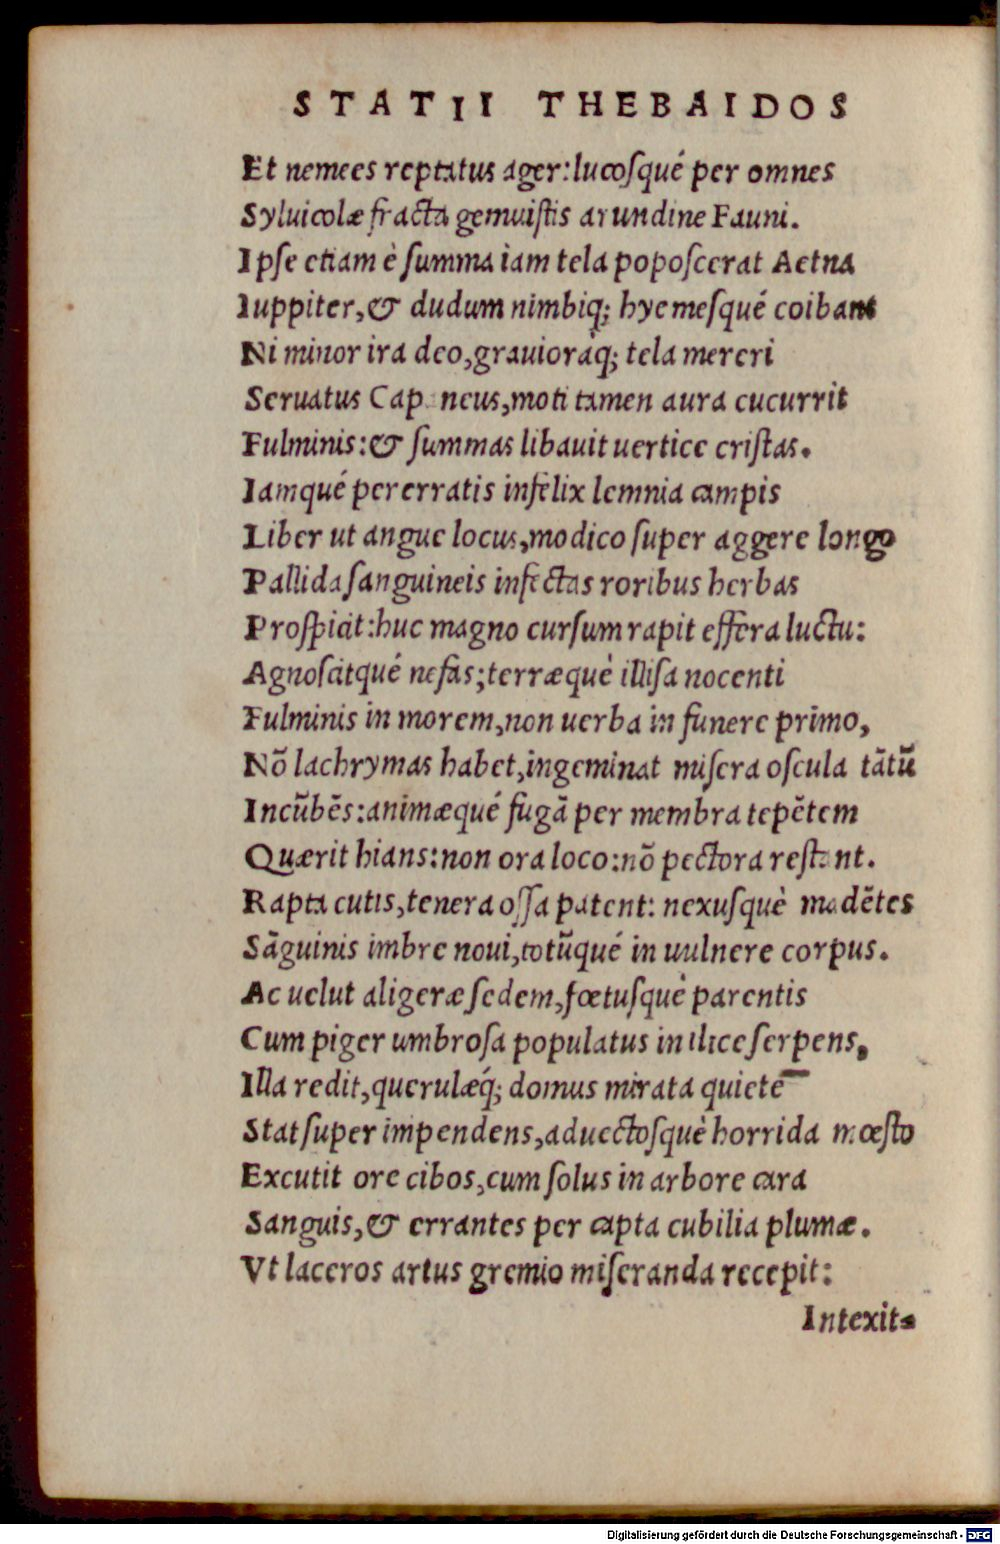 STATII THEBAIDOS
Et nemees reptatus ager: lucosqué per omnes
Syluicolæ fracta gemuistis arundine Fauni.
Ipse etiam è summa iam tela poposcerat Aetna
Iuppiter, & dudum nimbiq; hyemesqué coibant
Ni minor ira deo, grauioráq; tela mereri
Seruatus Cap neus, moti tamen aura cucurrit
Fulminis: & summas libauit uertice cristas.
Iamqué pererratis infelix lemnia campis
Liber ut angue locus, modico super aggere longo
Pallida sanguineis infectas roribus herbas
Prospicit: huc magno cursum rapit effera luctu:
Agnoscitqué nefas; terræquè illisa nocenti
Fulminis in morem, non uerba in funere primo,
Nõ lachrymas habet, ingeminat misera oscula tãtũ
Incũbẽs: animæqué fugã per membra tepẽtem
Quærit hians: non ora loco: nõ pectora restant.
Rapta cutis, tenera ossa patent: nexusquè madẽtes
Sãguinis imbre noui, totũqué in uulnere corpus.
Ac uelut aligeræ sedem, fœtusquè parentis
Cum piger umbrosa populatus in ilice serpens,
Illa redit, querulæq́; domus mirata quietẽ
Stat super impendens, aduectosquè horrida mœsto
Excutit ore cibos, cum solus in arbore cara
Sanguis, & errantes per capta cubilia plumæ.
Vt laceros artus gremio miseranda recepit:
Intexit
Digitalisierung gefördert durch die Deutsche Forschungsgemeinschaft - DFG